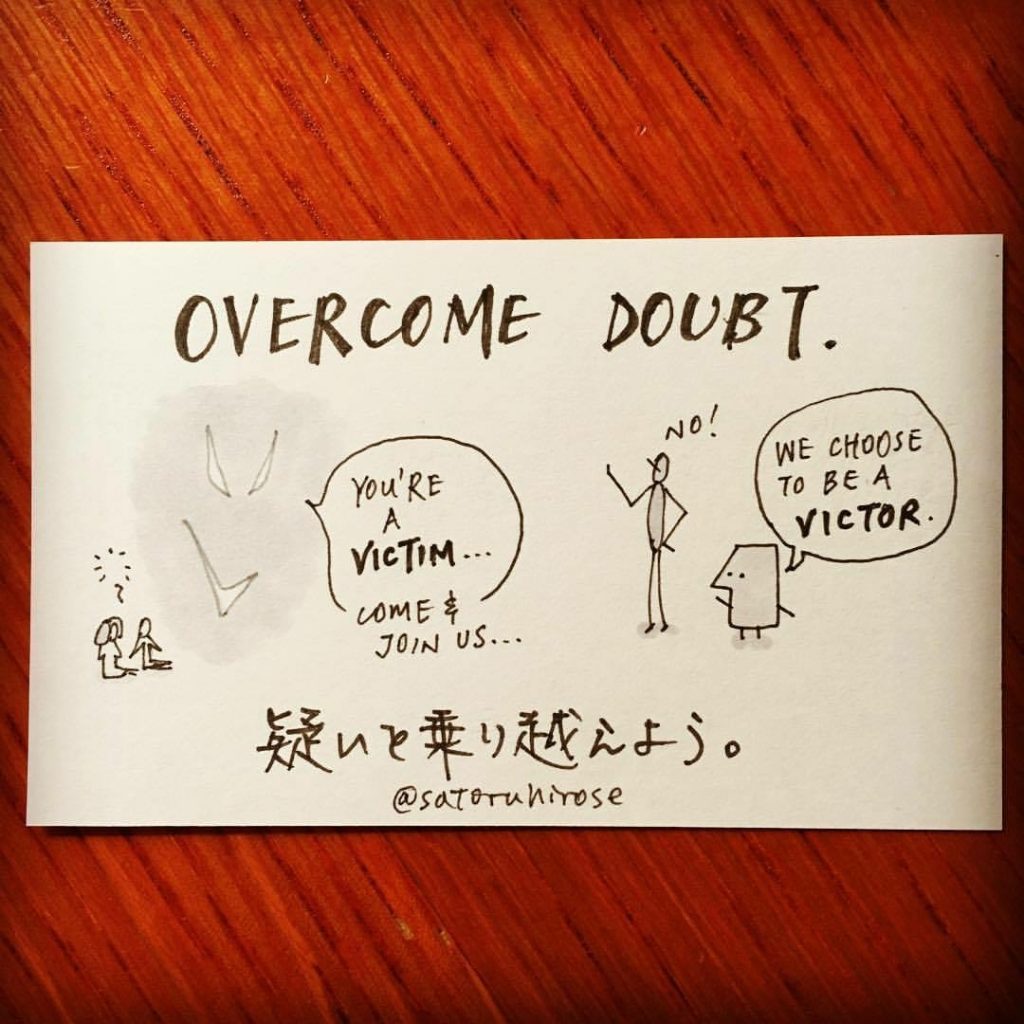 OVERCOME DOUBT.
YOU'RE
A
VICTIM...
COME &
JOIN US...
NO!
WE CHOOSE
TO BE A
VICTOR.
疑いを乗り越えよう。
@satoruhirose